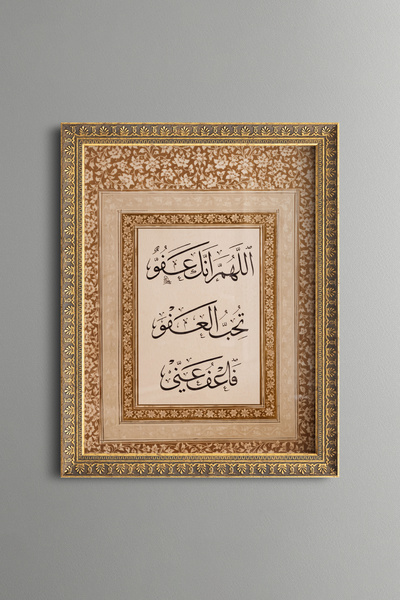 اَللّٰهُمَّ اِنَّكَ عَفُوٌّ
تُحِبُّ الْعَفْوَ
فَاعْفُ عَنِّي